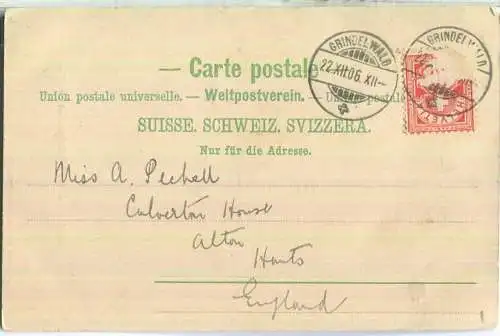 GRINDELWALD
22.XII.06.XII—
GRINDELWALD
— Carte postale
Union postale universelle. — Weltpostverein. — Un postale
SUISSE. SCHWEIZ. SVIZZERA.
Nur für die Adresse.
Miss A. Pechell
Culverton House
Alton
Hants
England